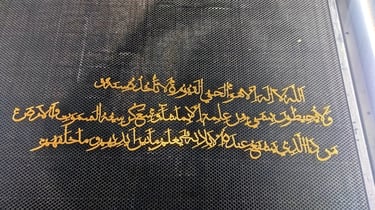 الله لا اله الا هو الحي القيوم لا تاخذه سنة
ولا يحيطون بشي من علمه الا بما شا وسع كرسيه السموت والارض
من ذا الذي يشفع عنده الا باذنه يعلم ما بين ايديهم وما خلفهم